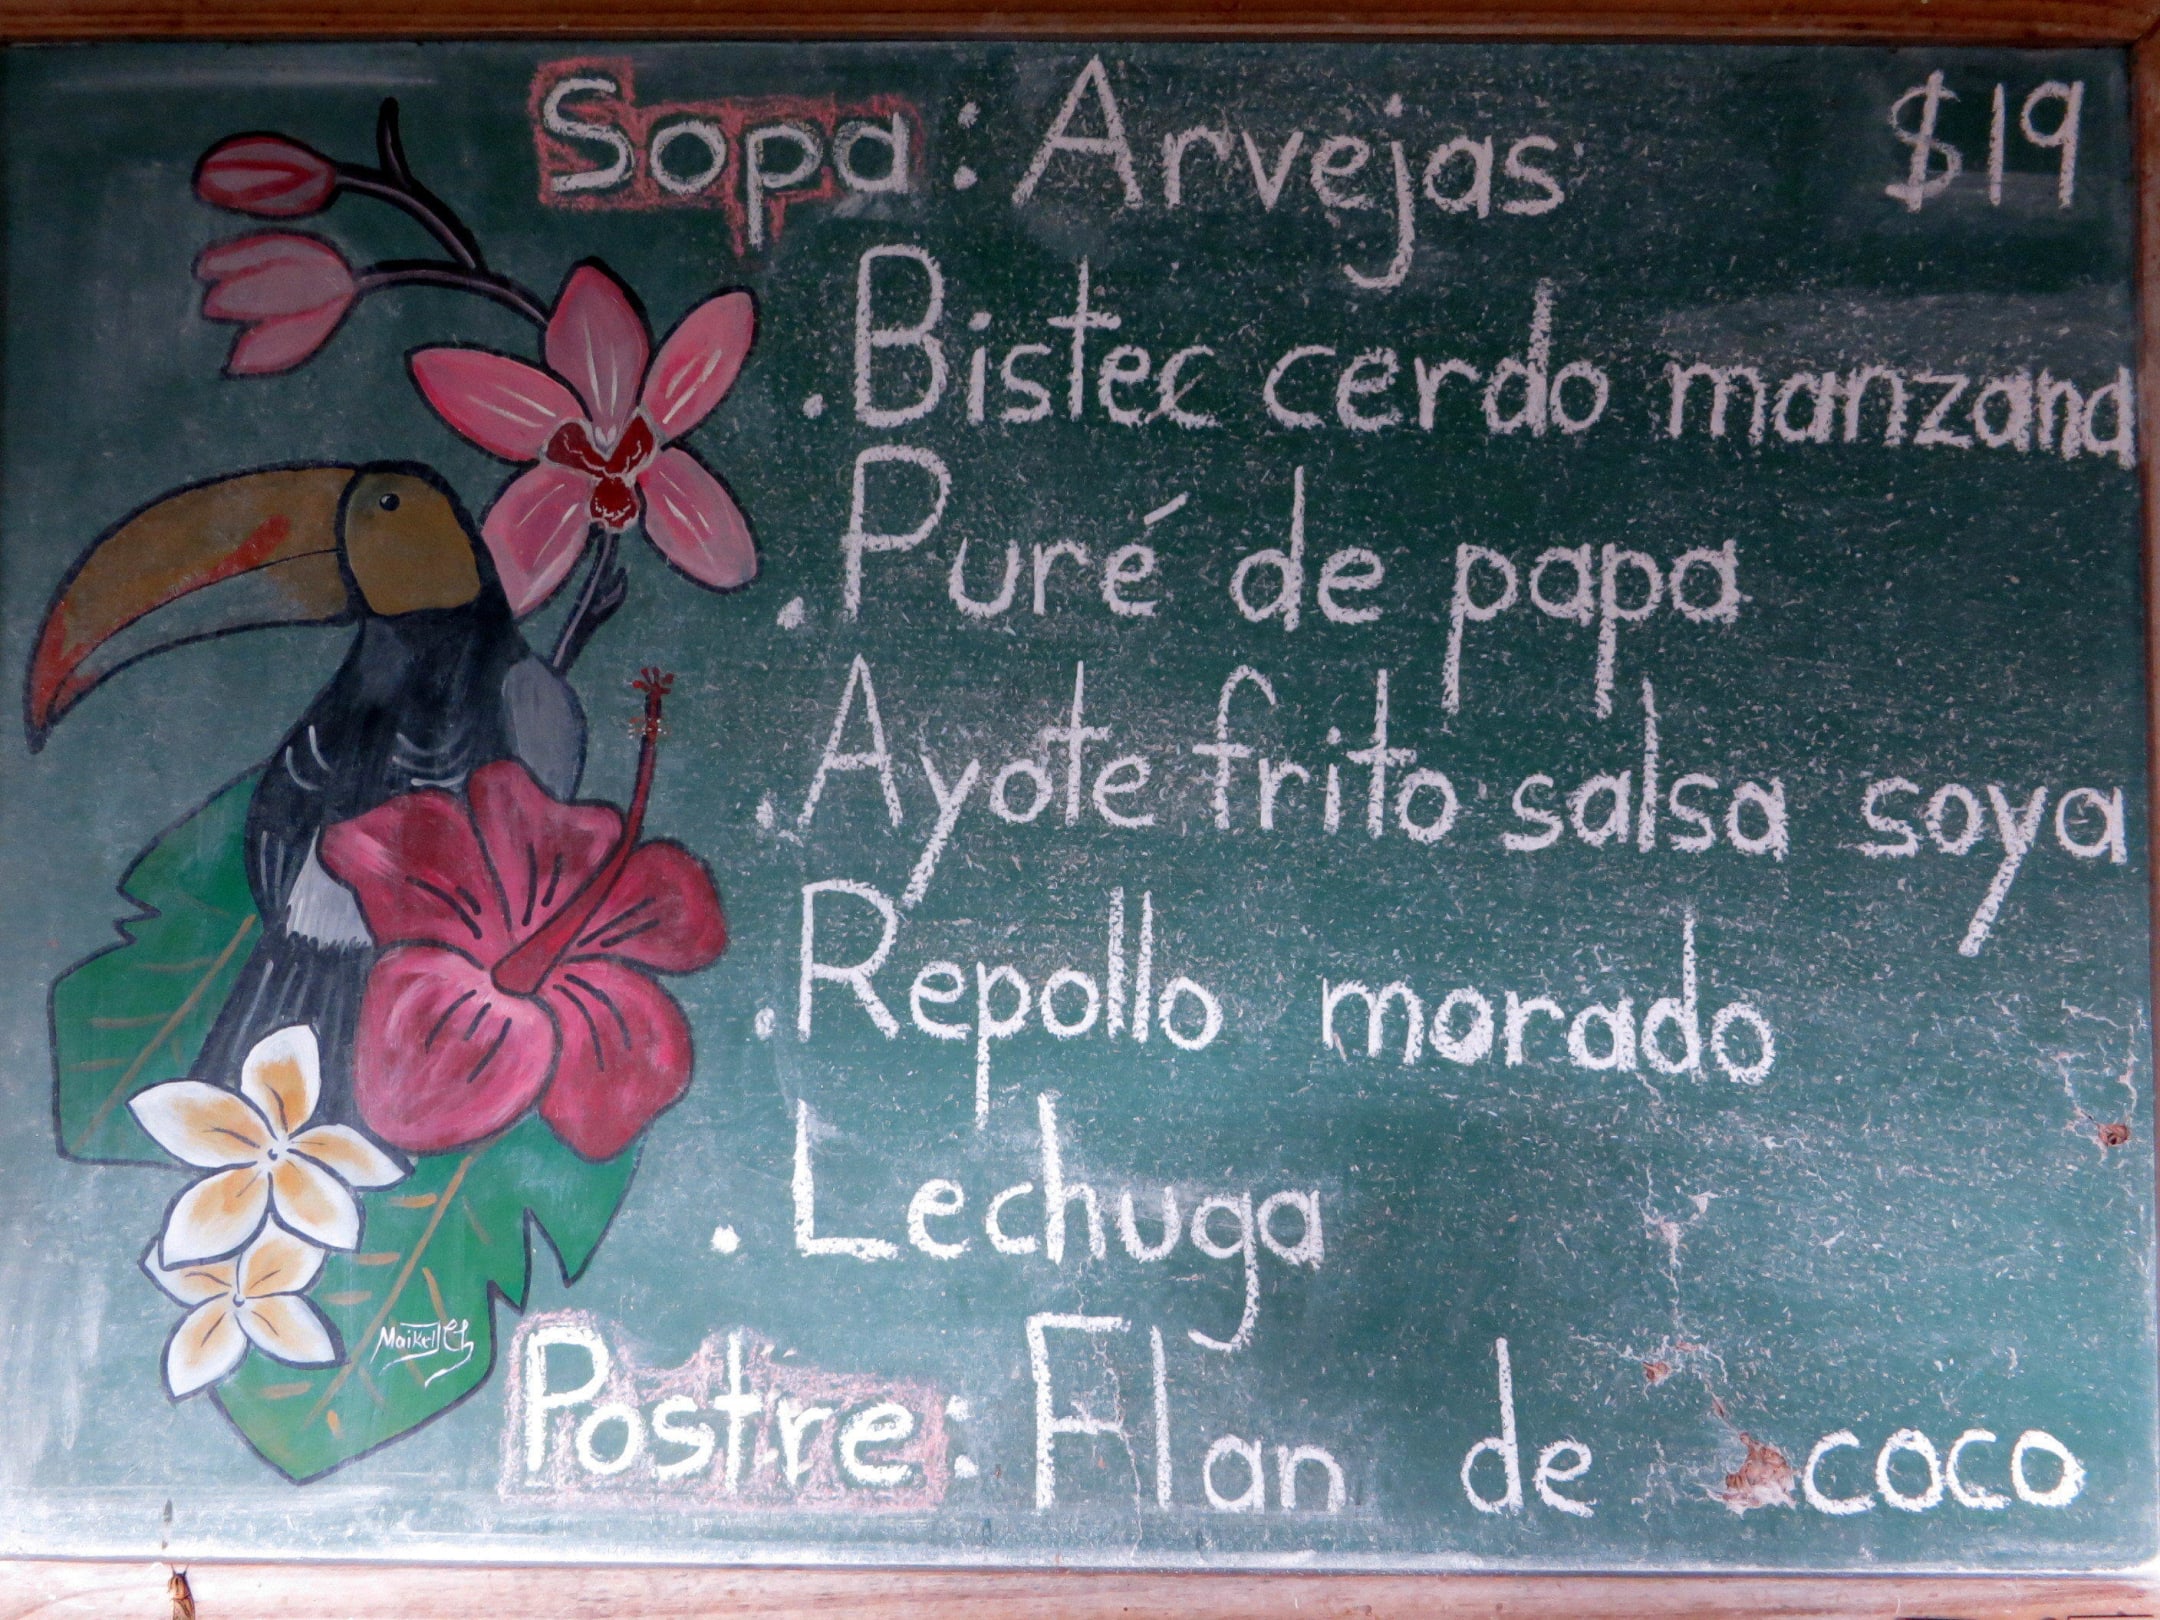 Sopa: Arvejas $19
.Bistec cerdo manzana
.Puré de papa
.Ayote frito salsa soya
.Repollo morado
.Lechuga
Postre: Flan de coco